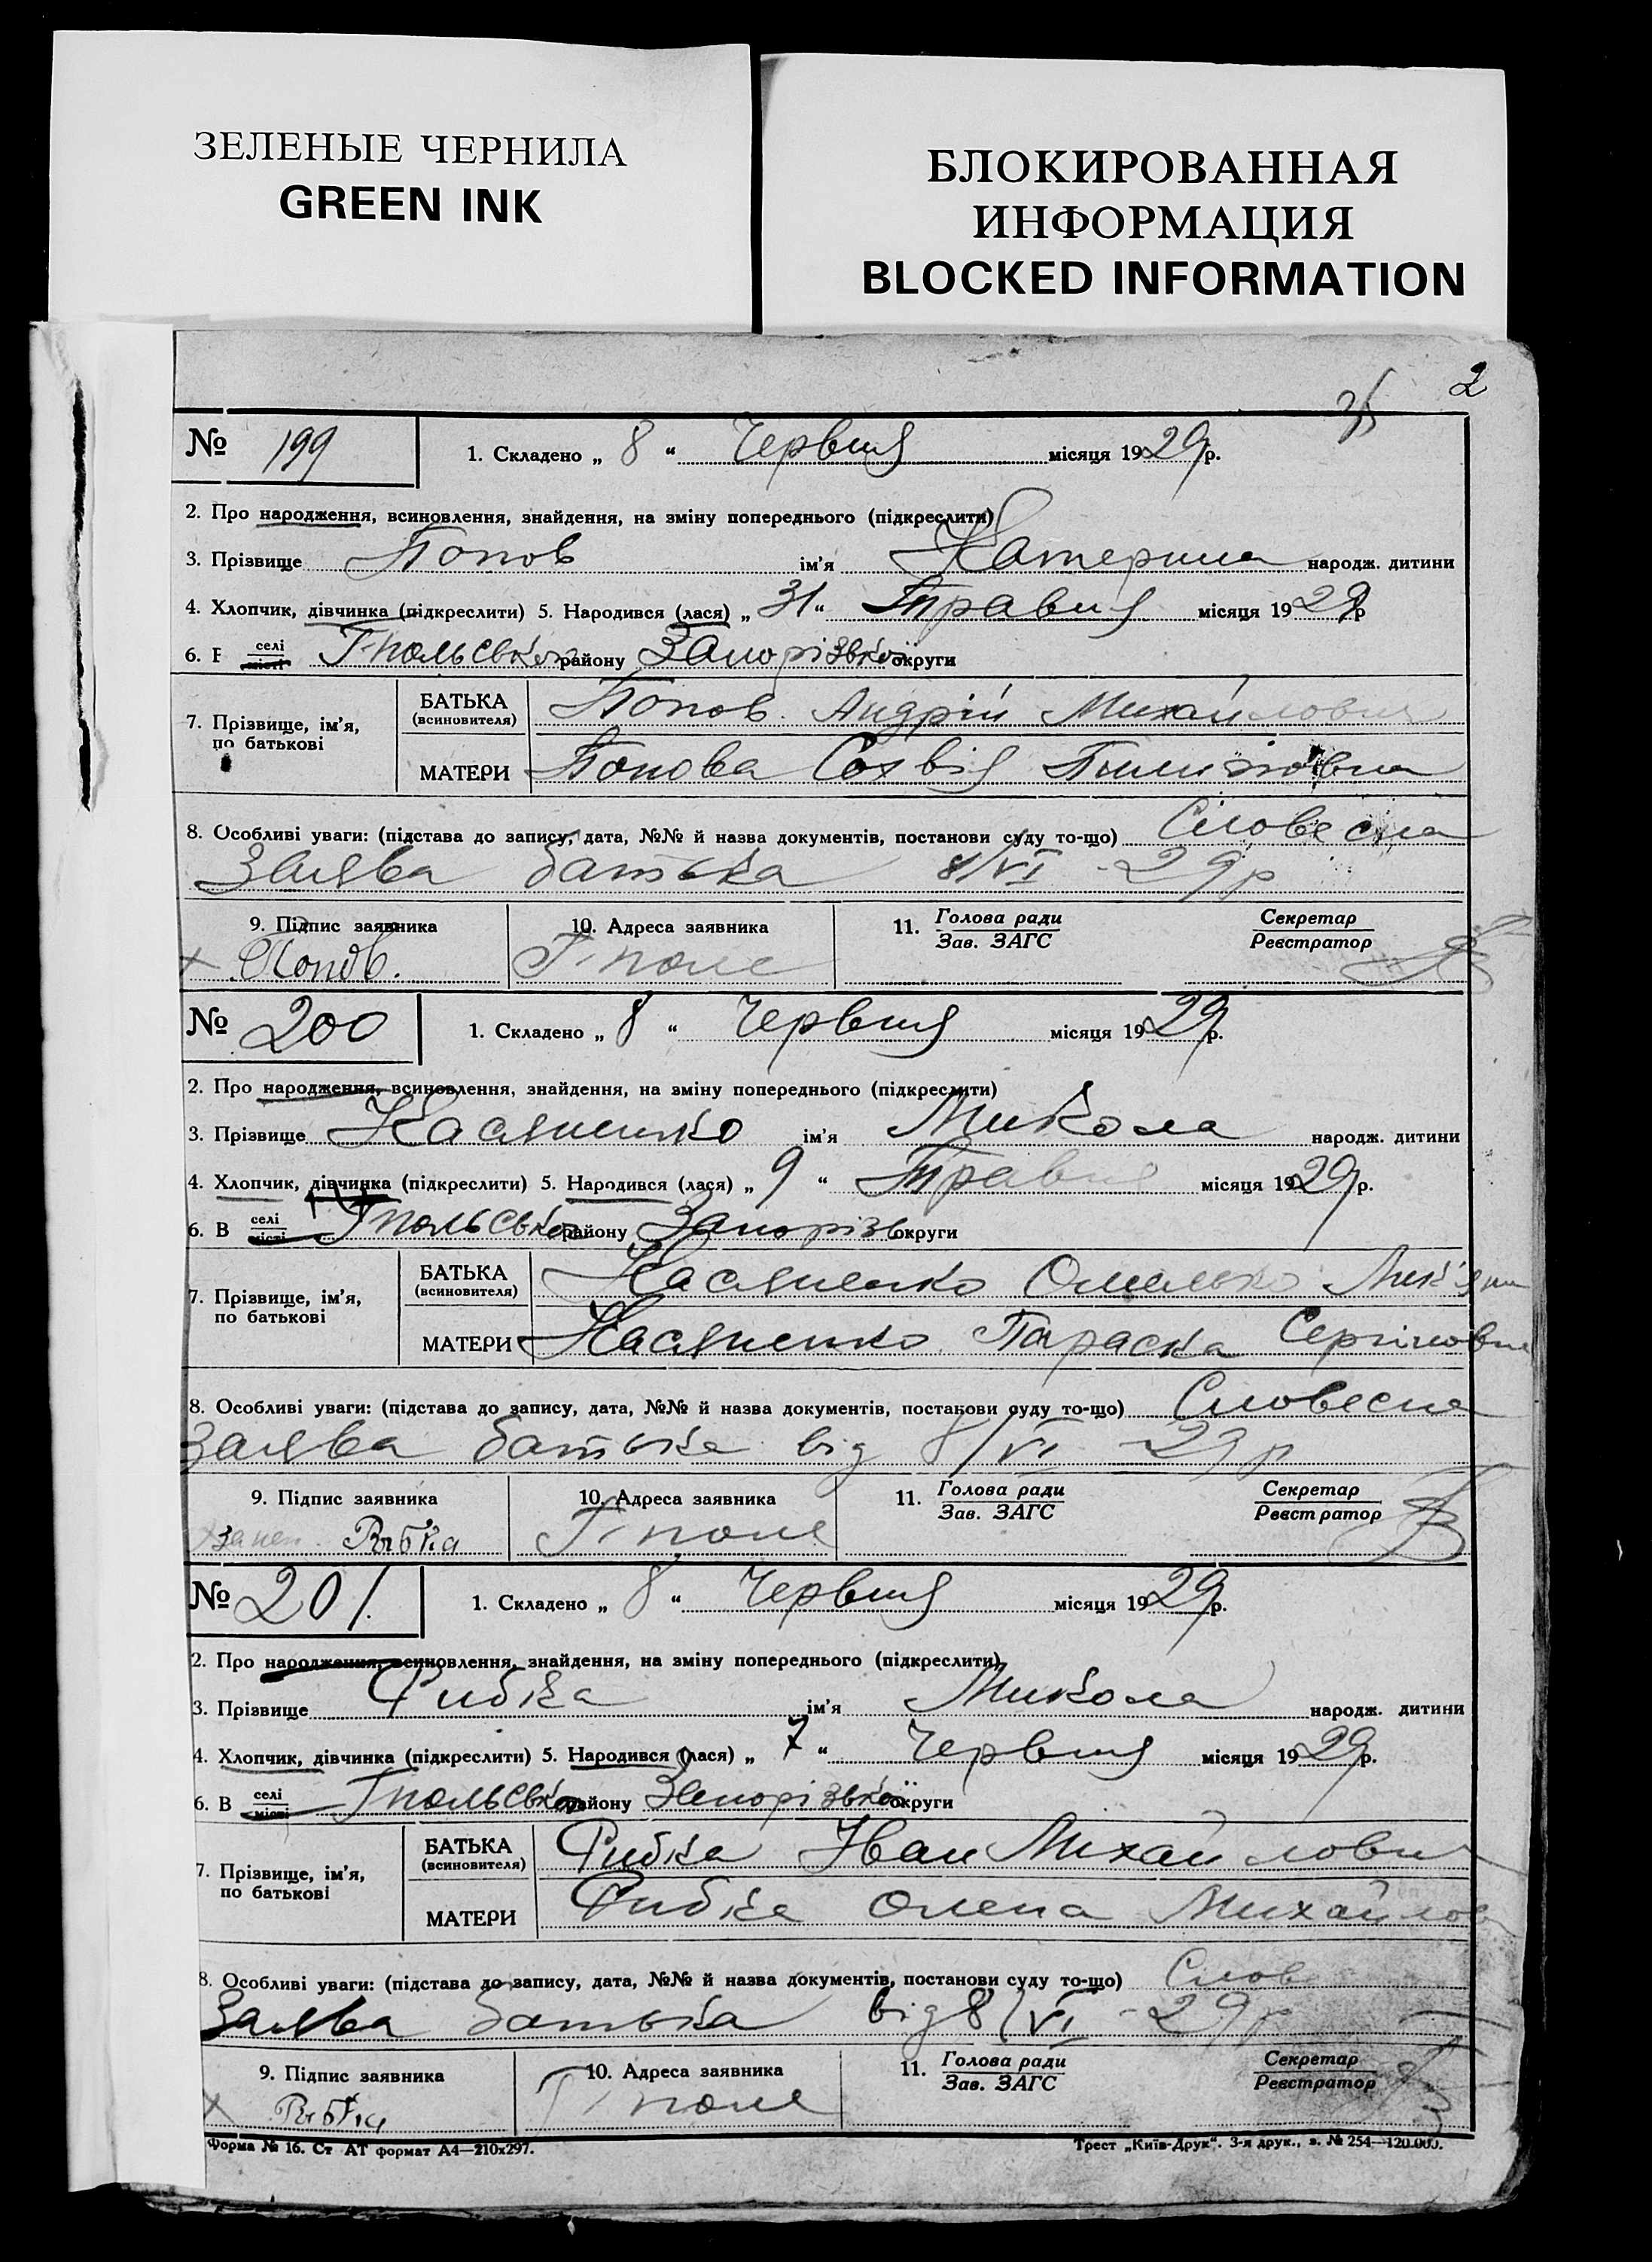 ЗЕЛЕНЫЕ ЧЕРНИЛА
GREEN INK
БЛОКИРОВАННАЯ
ИНФОРМАЦИЯ
BLOCKED INFORMATION
2
№ 199 1. Складено „ 8 “ Червня місяця 1929 р.
2. Про народження, всиновлення, знайдення, на зміну попереднього (підкреслити)
3. Прізвище Попов ім'я Катерина народж. дитини
4. Хлопчик, дівчинка (підкреслити) 5. Народився (лася) „ 31 “ Травня місяця 1929 р
6. селі місті Г-польсько району Запорізької округи
7. Прізвище, ім'я, по батькові
БАТЬКА (всиновителя) Попов Андрій Михайлович
МАТЕРИ Попова Сохвія
8. Особливі уваги: (підстава до запису, дата, №№ й назва документів, постанови суду то-що) Словесна
Заява батька 8/VI - 29 р
9. Підпис заявника 10. Адреса заявника 11. Голова ради Зав. ЗАГС Секретар Реєстратор
х Попов. Г-поле
№ 200 1. Складено „ 8 “ Червня місяця 1929 р.
2. Про народження, всиновлення, знайдення, на зміну попереднього (підкреслити)
3. Прізвище Касяненко ім'я Микола народж. дитини
4. Хлопчик, дівчинка (підкреслити) 5. Народився (лася) „ 9 “ Травня місяця 1929 р.
6. В селі місті Г-польсько району Запорізь округи
7. Прізвище, ім'я, по батькові
БАТЬКА (всиновителя) Касяненко Омелько
МАТЕРИ Касяненко Параска Сергіновна
8. Особливі уваги: (підстава до запису, дата, №№ й назва документів, постанови суду то-що) Словесна
Заява батька від 8/VI - 29 р
9. Підпис заявника 10. Адреса заявника 11. Голова ради Зав. ЗАГС Секретар Реєстратор
Рыбка Г-поле
№ 201. 1. Складено „ 8 “ Червня місяця 1929 р.
2. Про народження, всиновлення, знайдення, на зміну попереднього (підкреслити)
3. Прізвище Рибка ім'я Микола народж. дитини
4. Хлопчик, дівчинка (підкреслити) 5. Народився (лася) „ 7 “ Червня місяця 1929 р.
6. В селі місті Г-польсько району Запорізької округи
7. Прізвище, ім'я, по батькові
БАТЬКА (всиновителя) Рибка Іван Михайлович
МАТЕРИ Рибка Олена Михайлов
8. Особливі уваги: (підстава до запису, дата, №№ й назва документів, постанови суду то-що) Слов
Заява батька від 8/VI - 29 р
9. Підпис заявника 10. Адреса заявника 11. Голова ради Зав. ЗАГС Секретар Реєстратор
х Рыбка Г-поле
Форма № 16. Ст АТ формат А4—210х297. Трест „Київ-Друк“. 3-я друк., з. № 254—120.000.